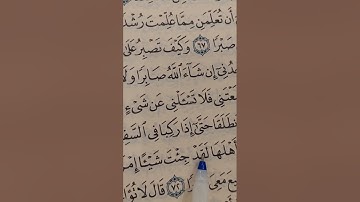 أَن تُعَلِّمَنِ مِمَّا عُلِّمْتَ رُشْدً
صَبْرًا ٦٧ وَكَيْفَ تَصْبِرُ عَلَىٰ
إِن شَآءَ ٱللَّهُ صَابِرًا وَلَ
فَلَا تَسْـَٔلْنِي عَن شَىْءٍ
حَتَّىٰٓ إِذَا رَكِبَا فِى ٱلسَّفِ
أَهْلَهَا لَقَدْ جِئْتَ شَيْـًٔا إِمْ
مَعِىَ ٧٢ قَالَ لَا تُؤَا